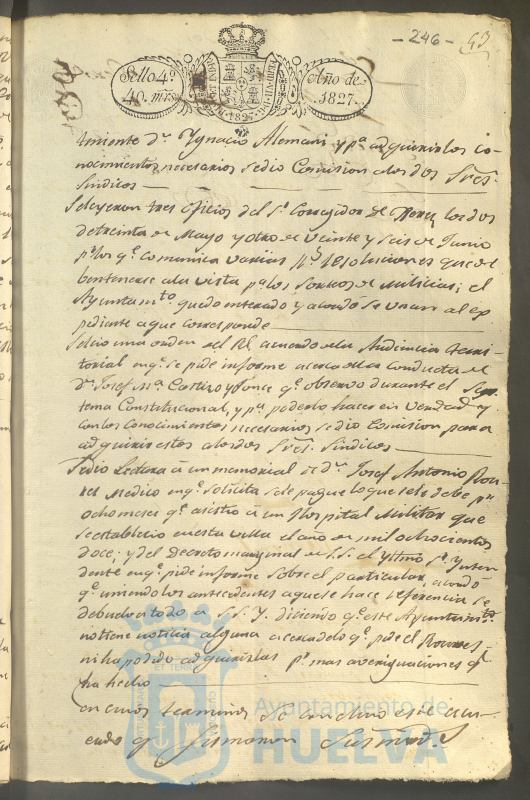 - 246 - 43
Sello 4º
40. mrs.
Año de
1827.
teniente Dn. Ygnacio Alemani y pa. adquirir los co-
nocimientos necesarios se dio Comision a los dos Sres.
Sindicos
Se leyeron tres oficios del Sr. Corregidor de los dos
de treinta de Mayo y otro de veinte y seis de Junio
pr. los qe. comunica varias Rs. resoluciones que de
ben tenerse a la vista pa. los Sorteos de Milicias; el
Ayuntamto. quedo enterado y acordó se unan al ex
pediente a que corresponde
Se dio una orden del Rl. acuerdo de la Audiencia terri-
torial en qe. se pide informe acerca de la conducta de
Dn. Josef Ma. y Ponce qe. observó durante el Sys-
tema Constitucional, y pa. poderlo hacer con verdad y
con los conocimientos necesarios se dio Comision para
adquirir estos a los dos Sres. Sindicos
Se dio Lectura a un memorial de Dn. Josef Antonio
Medico en qe. solicita se le pague lo que se le debe pr.
ocho meses qe. asistio a un Hospital Militar que
se establecio en esta villa el año de mil ochocientos
doce; y del Decreto marginal de S.S. el Yltmo. Sr. Ynten
dente en qe. pide informe sobre el particular, acordó
qe. uniendo los antecedentes a que se hace referencia se
debuelva todo a S.S.Y. diciendo qe. este Ayuntamto.
no tiene noticia alguna acerca de lo qe. pide el
ni ha podido adquirirlas pr. mas averiguaciones qe.
ha hecho
en cuios terminos se concluio este acu-
erdo qe. firmaron Sus mrds.
Ayuntamiento de
HUELVA